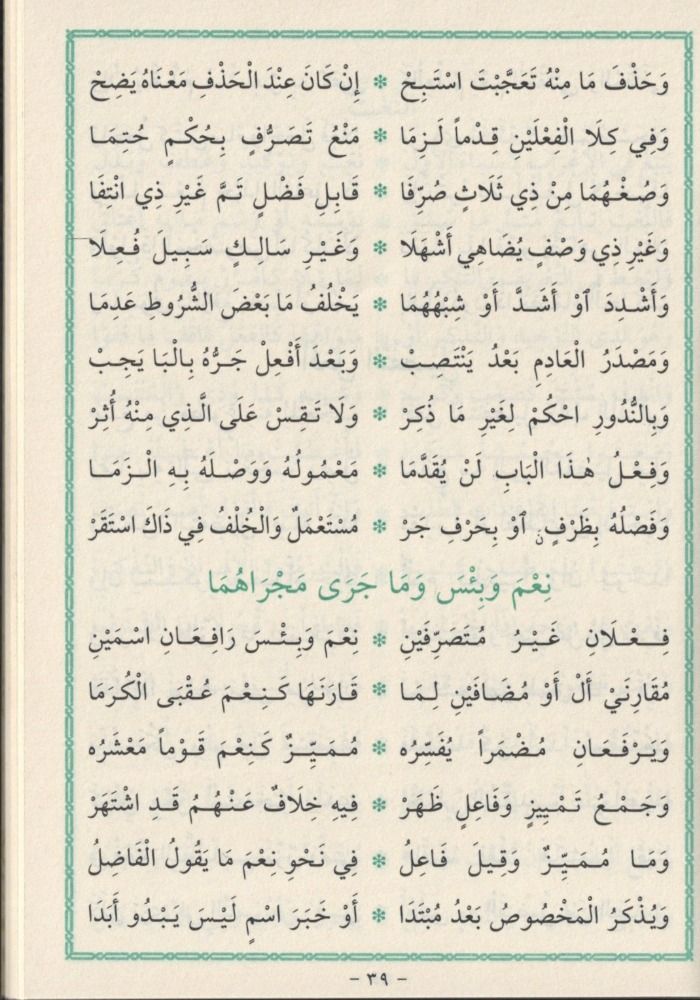 وَحَذْفَ مَا مِنْهُ تَعَجَّبْتَ اسْتَبِحْ * إِنْ كَانَ عِنْدَ الْحَذْفِ مَعْنَاهُ يَضِحْ
وَفِي كِلَا الْفِعْلَيْنِ قِدْماً لَزِمَا * مَنْعُ تَصَرُّفٍ بِحُكْمٍ حُتِمَا
وَصُغْهُمَا مِنْ ذِي ثَلَاثٍ صُرِّفَا * قَابِلِ فَضْلٍ تَمَّ غَيْرِ ذِي انْتِفَا
وَغَيْرِ ذِي وَصْفٍ يُضَاهِي أَشْهَلَا * وَغَيْرِ سَالِكٍ سَبِيلَ فُعِلَا
وَأَشْدِدَ ٱوْ أَشَدَّ أَوْ شِبْهُهُمَا * يَخْلُفُ مَا بَعْضَ الشُّرُوطِ عَدِمَا
وَمَصْدَرُ الْعَادِمِ بَعْدُ يَنْتَصِبْ * وَبَعْدَ أَفْعِلْ جَرُّهُ بِالْبَا يَجِبْ
وَبِالنُّدُورِ احْكُمْ لِغَيْرِ مَا ذُكِرْ * وَلَا تَقِسْ عَلَى الَّذِي مِنْهُ أُثِرْ
وَفِعْلُ هٰذَا الْبَابِ لَنْ يُقَدَّمَا * مَعْمُولُهُ وَوَصْلَهُ بِهِ الْزَمَا
وَفَصْلُهُ بِظَرْفٍ ٱوْ بِحَرْفِ جَرْ * مُسْتَعْمَلٌ وَالْخُلْفُ فِي ذَاكَ اسْتَقَرْ
نِعْمَ وَبِئْسَ وَمَا جَرَى مَجْرَاهُمَا
فِعْلَانِ غَيْرُ مُتَصَرِّفَيْنِ * نِعْمَ وَبِئْسَ رَافِعَانِ اسْمَيْنِ
مُقَارِنَيْ أَلْ أَوْ مُضَافَيْنِ لِمَا * قَارَنَهَا كَنِعْمَ عُقْبَى الْكُرَمَا
وَيَرْفَعَانِ مُضْمَراً يُفَسِّرُه * مُمَيِّزٌ كَنِعْمَ قَوْماً مَعْشَرُه
وَجَمْعُ تَمْيِيزٍ وَفَاعِلٍ ظَهَرْ * فِيهِ خِلَافٌ عَنْهُمُ قَدِ اشْتَهَرْ
وَمَا مُمَيِّزٌ وَقِيلَ فَاعِلُ * فِي نَحْوِ نِعْمَ مَا يَقُولُ الْفَاضِلُ
وَيُذْكَرُ الْمَخْصُوصُ بَعْدُ مُبْتَدَا * أَوْ خَبَرَ اسْمٍ لَيْسَ يَبْدُو أَبَدَا
- ٣٩ -